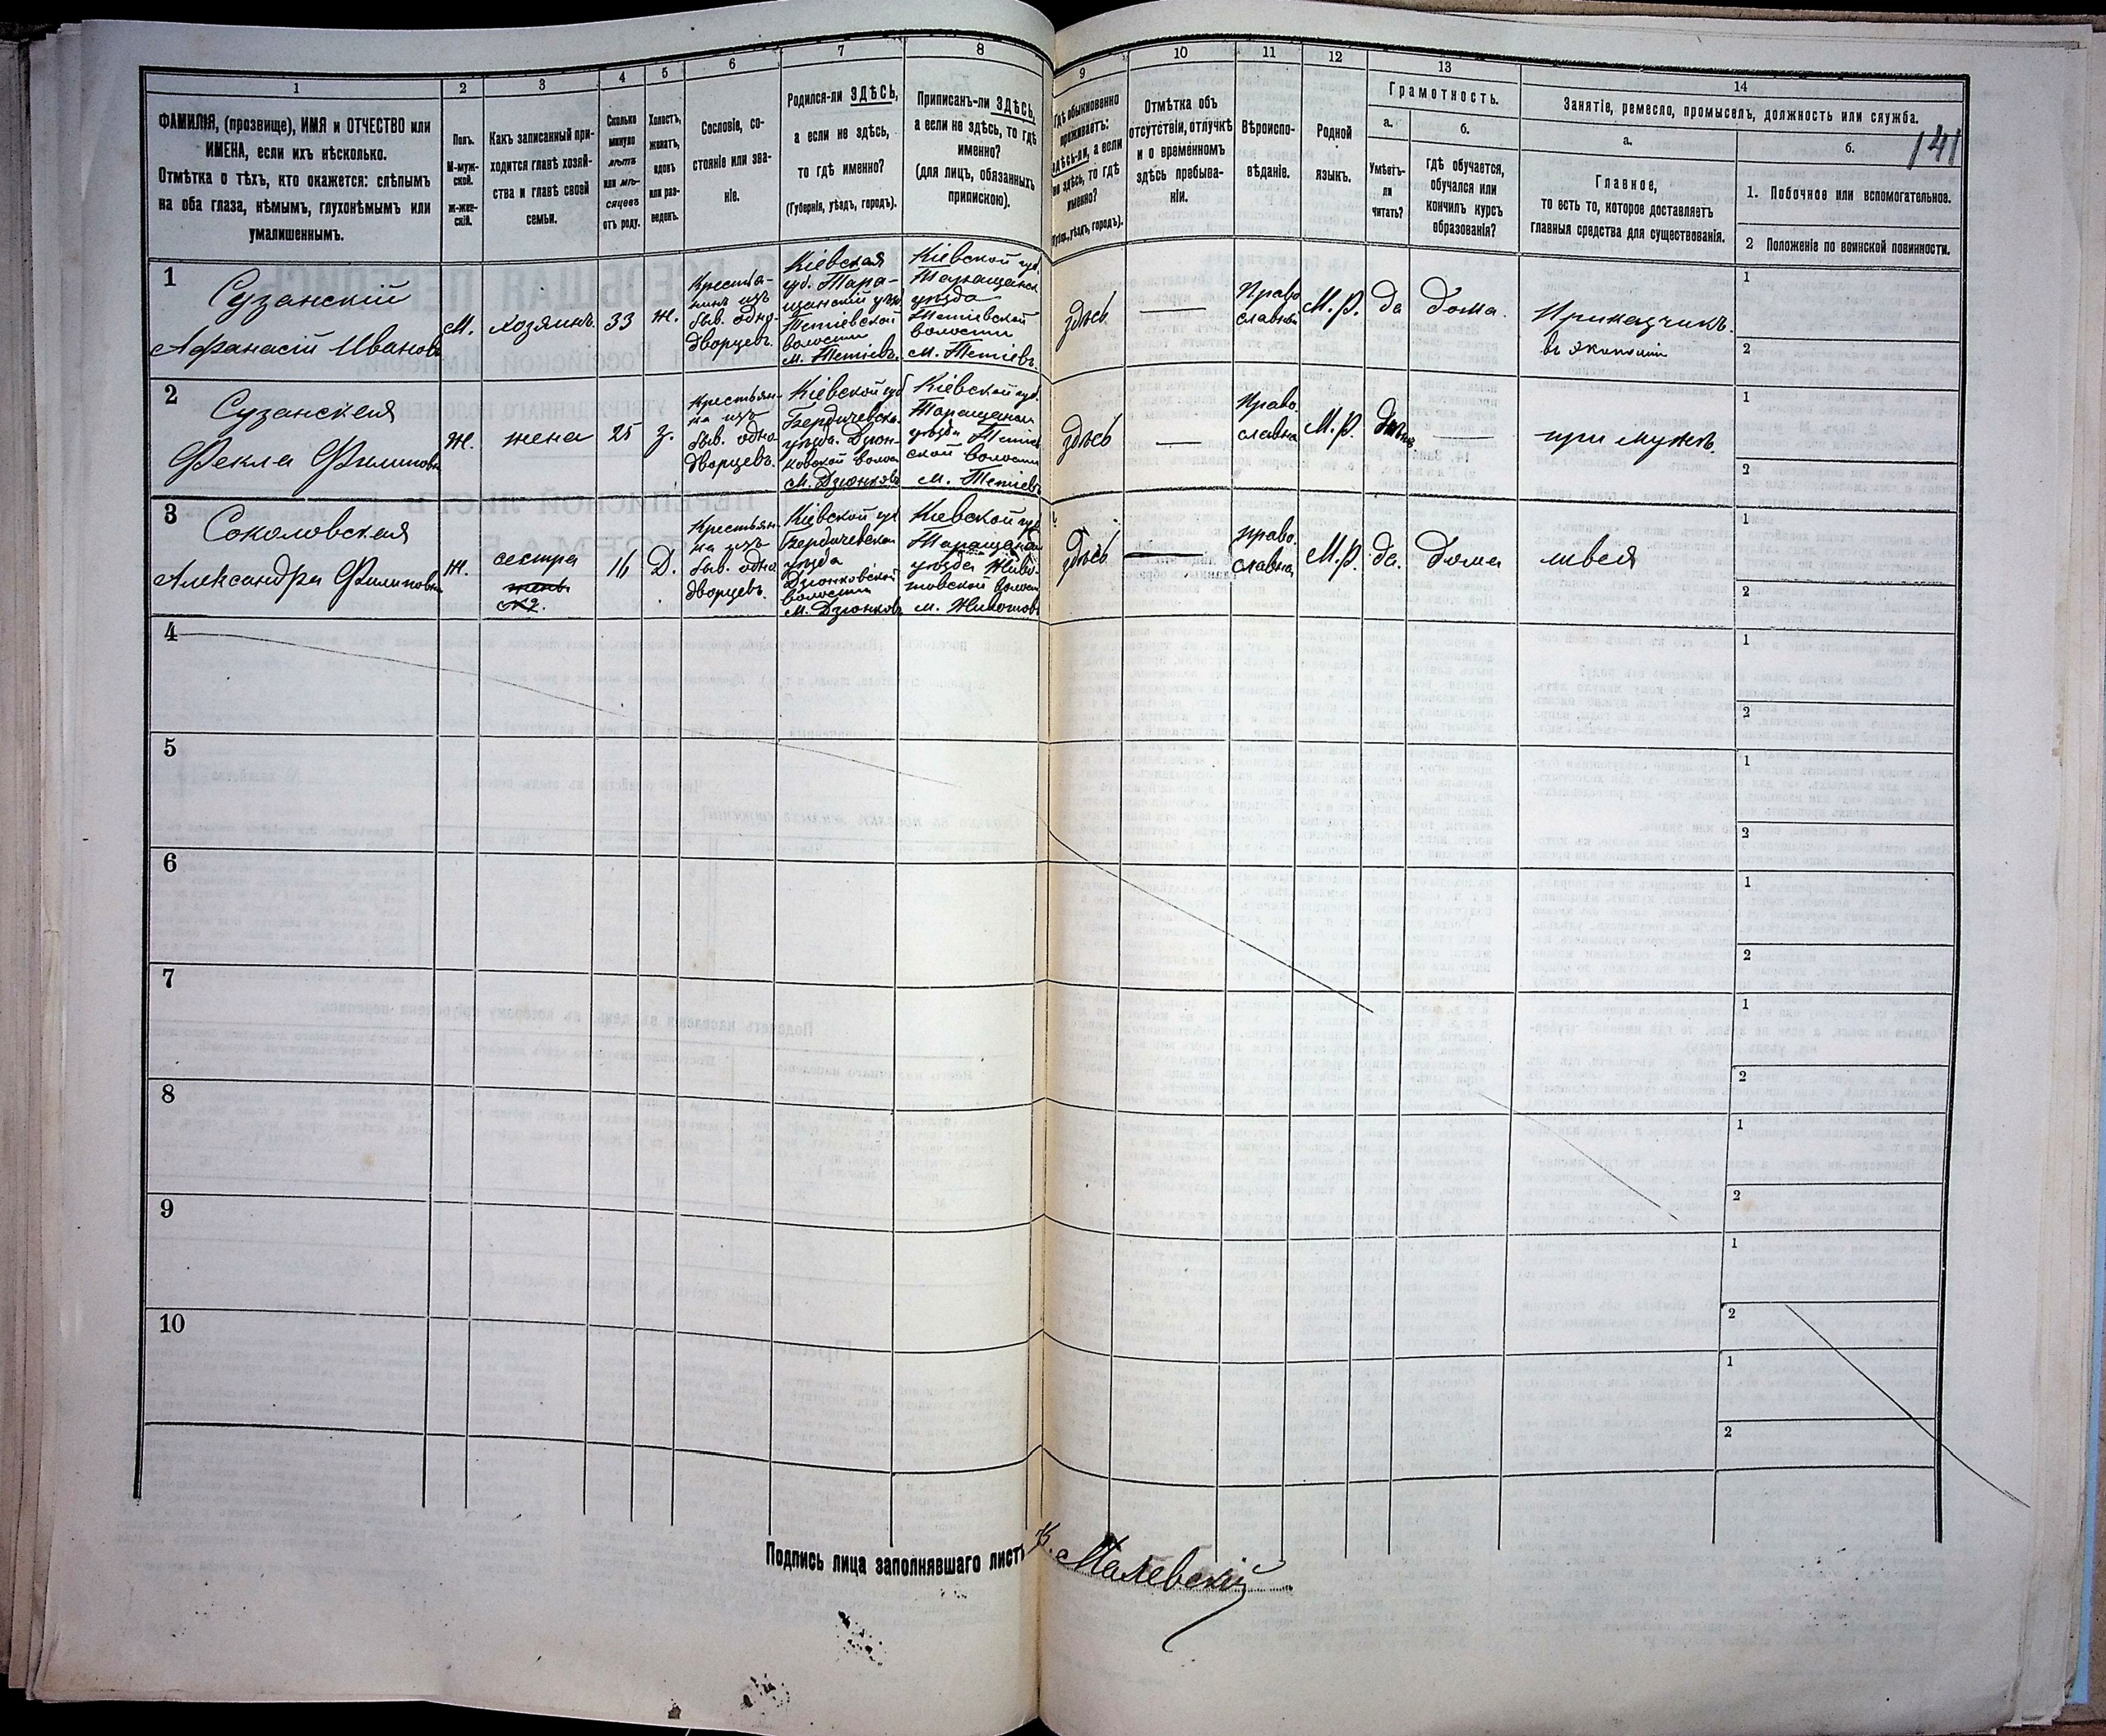 1
2
3
4
5
6
7
8
ФАМИЛІЯ, (прозвище), ИМЯ и ОТЧЕСТВО или
ИМЕНА, если ихъ нѣсколько.
Отмѣтка о тѣхъ, кто окажется: слѣпымъ
на оба глаза, нѣмымъ, глухонѣмымъ или
умалишеннымъ.
Полъ.
М-муж-
ской.
ж-жен-
скій.
Какъ записанный при-
ходится главѣ хозяй-
ства и главѣ своей
семьи.
Сколько
минуло
лѣтъ
или мѣ-
сяцевъ
отъ роду.
Холостъ,
женатъ,
вдовъ
или раз-
веденъ.
Сословіе, со-
стояніе или зва-
ніе.
Родился-ли ЗДѢСЬ,
а если не здѣсь,
то гдѣ именно?
(Губернія, уѣздъ, городъ).
Приписанъ-ли ЗДѢСЬ,
а если не здѣсь, то гдѣ
именно?
(для лицъ, обязанныхъ
припискою).
9
10
11
12
13
14
Гдѣ обыкновенно
проживаетъ:
здѣсь-ли, а если
не здѣсь, то гдѣ
именно?
Отмѣтка объ
отсутствіи, отлучкѣ
и о временномъ
здѣсь пребыва-
ніи.
Вѣроиспо-
вѣданіе.
Родной
языкъ.
Грамотность.
а.
Умѣетъ-
ли
читать?
б.
гдѣ обучается,
обучался или
кончилъ курсъ
образованія?
Занятіе, ремесло, промыселъ, должность или служба.
а.
Главное,
то есть то, которое доставляетъ
главныя средства для существованія.
б.
141
1. Побочное или вспомогательное.
2 Положеніе по воинской повинности.
1
Сузанскій
Афанасій Ивановъ
М.
хозяинъ
33
ж.
Крестья-
нинъ изъ
быв. одно-
дворцевъ.
Кіевская
губ. Тара-
щанскій уѣз
Тетіевской
волости
м. Тетіевъ.
Кіевской губ.
Таращанск
уѣзда
Тетіевской
волости
м. Тетіевъ.
здѣсь
Право
славный
М. Р.
да
дома.
Приказчикъ
въ экономіи
1
2
2
Сузанская
Фекла Филипов
Ж.
жена
25
з.
Крестьян-
ка изъ
быв. одно
дворцевъ.
Кіевской губ
Бердичевска
уѣзда. Дзюн-
ковской волос
м. Дзюнковъ
Кіевской губ.
Таращанск
уѣзда Тетіев
ской волости
м. Тетіевъ
здѣсь
Право.
славна
М. Р.
при мужѣ.
1
2
3
Соколовская
Александра Филипов
Ж.
сестра
жены
16
Д.
Крестьян-
ка изъ
быв. одно
дворцевъ.
Кіевской губ
Бердичевской
уѣзда
Дзюнковской
волости
м. Дзюнковъ
Кіевской губ
Таращанск
уѣзда Живо-
товской волост
м. Животовъ
здѣсь
право.
славна
М. Р.
да.
дома
швея
1
2
4
1
2
5
1
2
6
1
2
7
1
2
8
1
2
9
1
2
10
1
2
Подпись лица заполнявшаго листъ
К. Малевскій